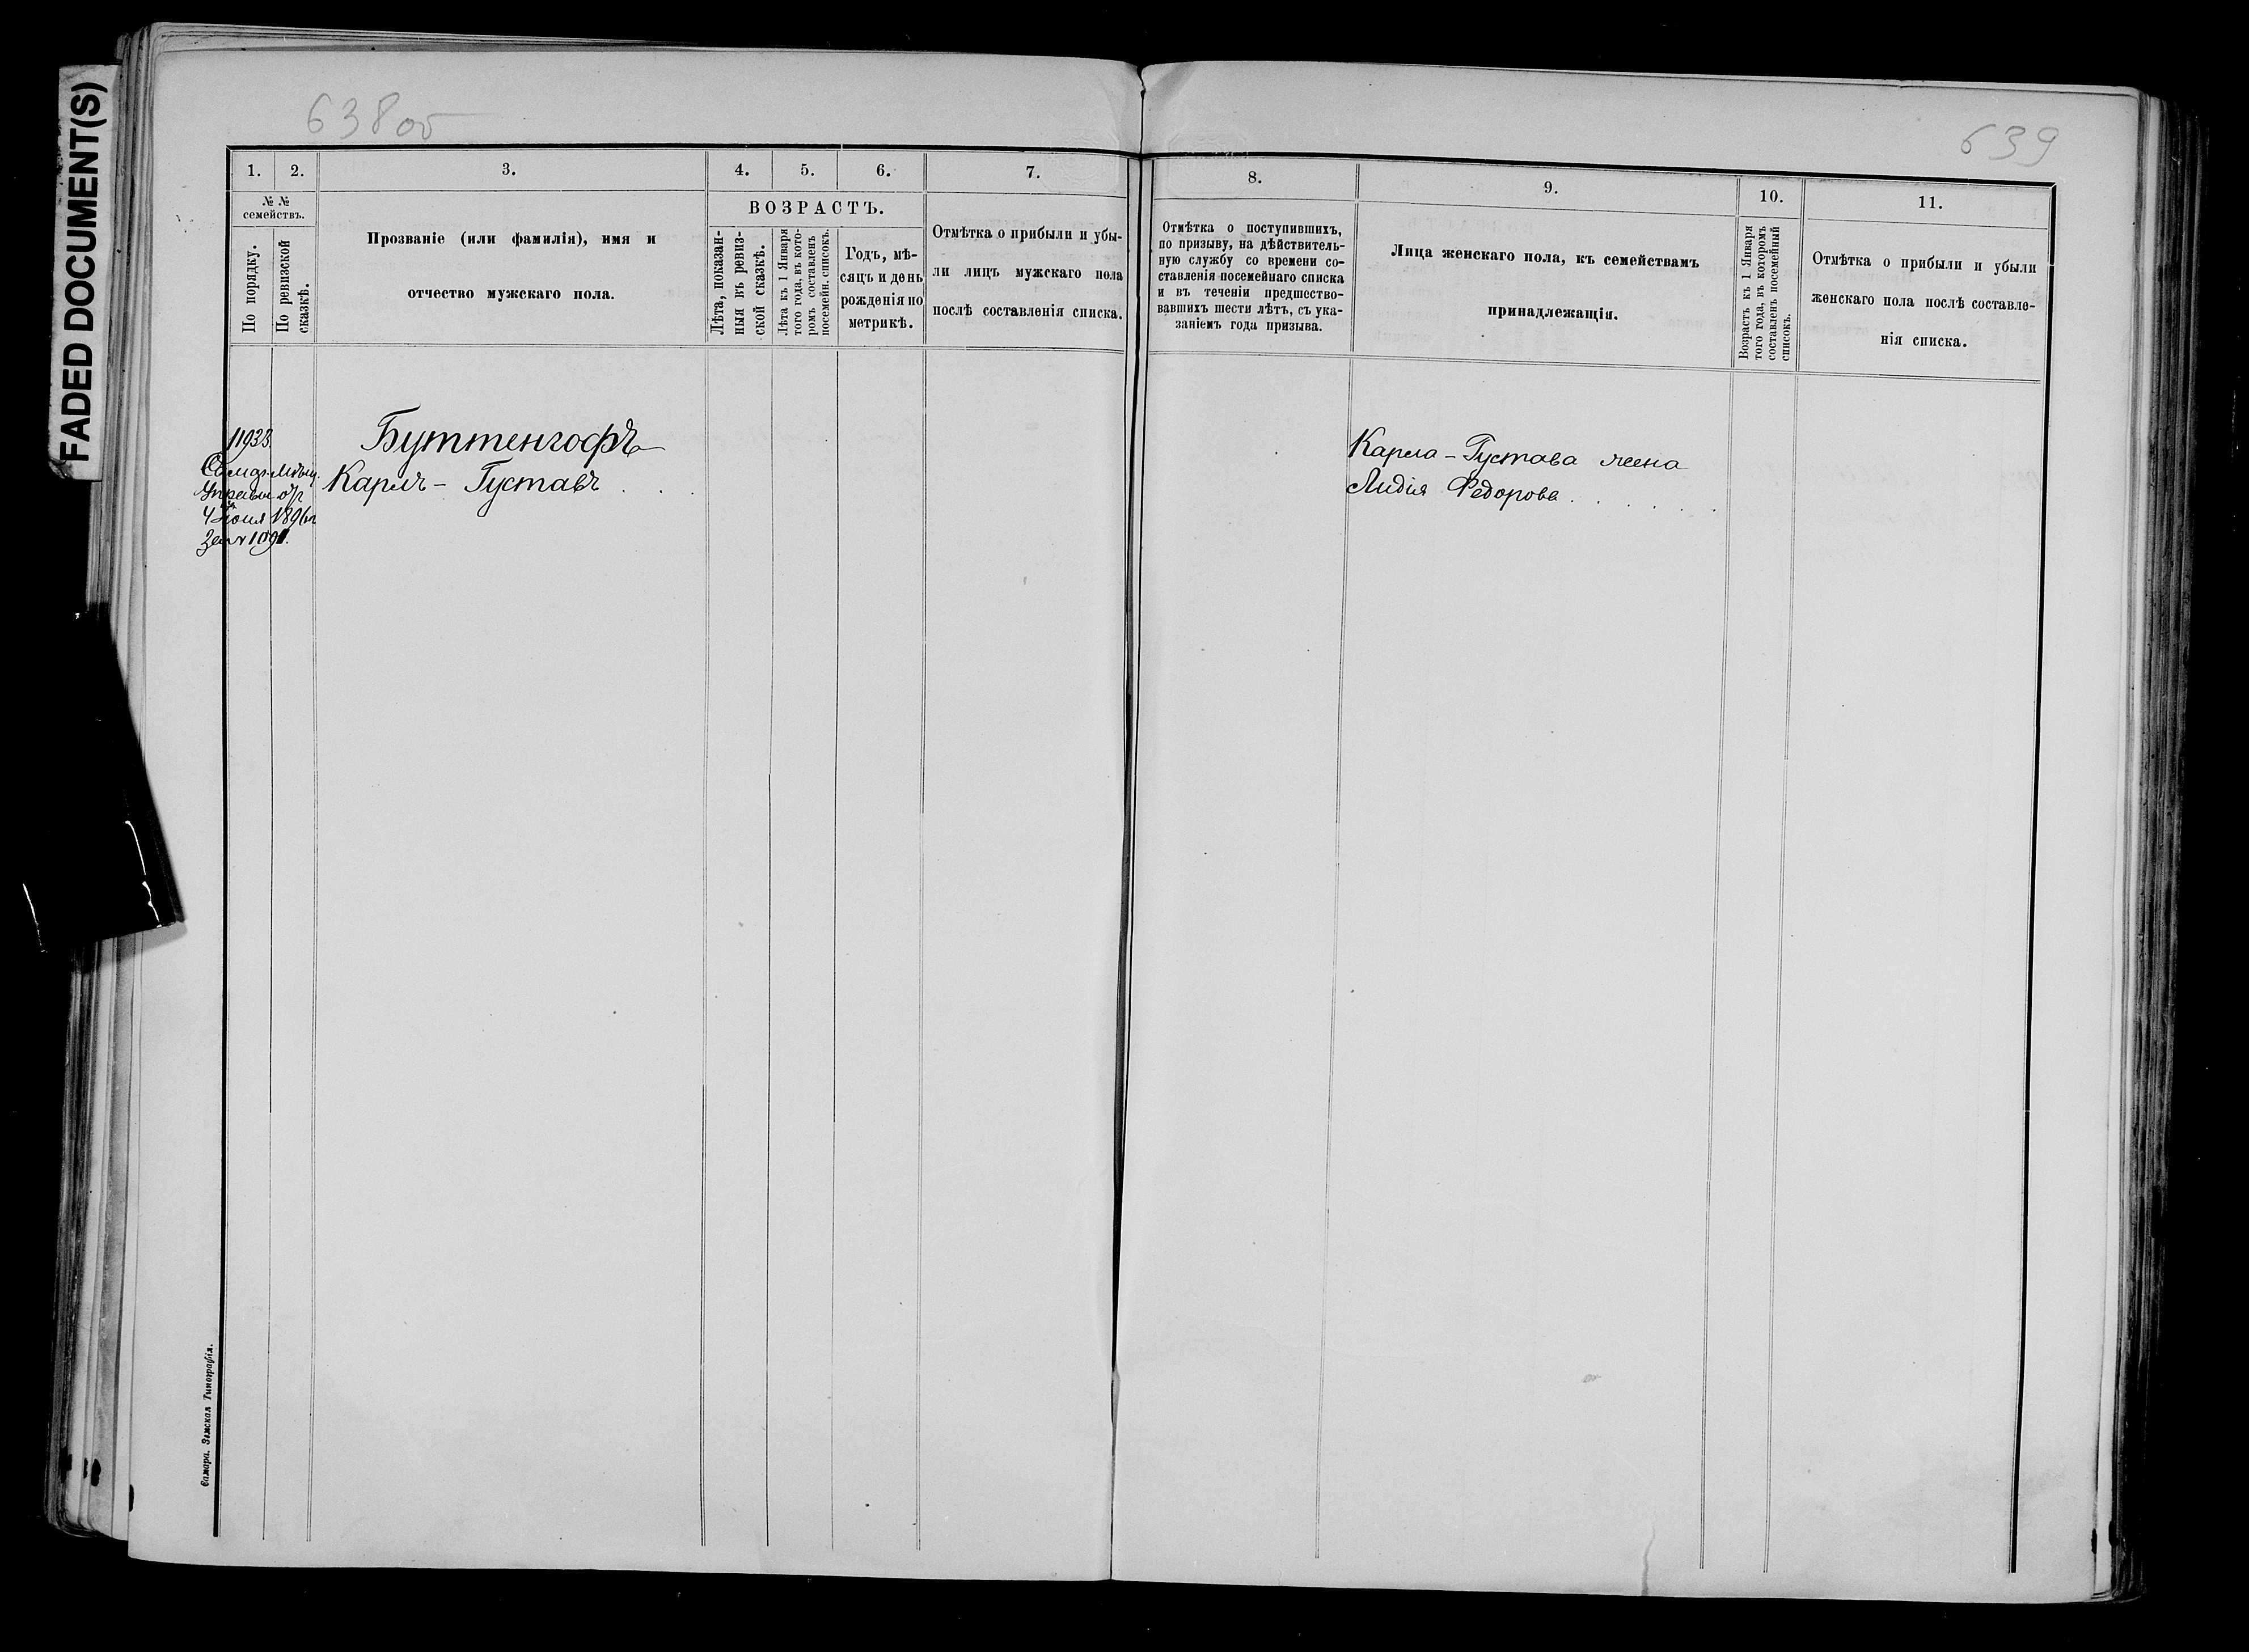 FADED DOCUMENT(S)
638об
639
1. 2. 3. 4. 5. 6. 7.
№ №
семействъ.
По порядку.
По ревизской
сказкѣ.
Прозваніе (или фамилія), имя и
отчество мужскаго пола.
ВОЗРАСТЪ.
Лѣта, показан-
ныя въ ревиз-
ской сказкѣ.
Лѣта къ 1 Января
того года, въ кото-
ромъ составленъ
посемейн. списокъ.
Годъ, мѣ-
сяцъ и день
рожденія по
метрикѣ.
Отмѣтка о прибыли и убы-
ли лицъ мужскаго пола
послѣ составленія списка.
11933
Мѣщ.
4 Іюня 1896 г.
Буттенгофъ
Карлъ - Густавъ . . .
Самара. Земская Типографія.
8. 9. 10. 11.
Отмѣтка о поступившихъ,
по призыву, на дѣйствитель-
ную службу со времени со-
ставленія посемейнаго списка
и въ теченіи предшество-
вавшихъ шести лѣтъ, съ ука-
заніемъ года призыва.
Лица женскаго пола, къ семействамъ
принадлежащія.
Возрастъ къ 1 Января
того года, въ которомъ
составленъ посемейный
списокъ.
Отмѣтка о прибыли и убыли
женскаго пола послѣ составле-
нія списка.
Карла - Густава жена
Лидія Федорова . . . . . .